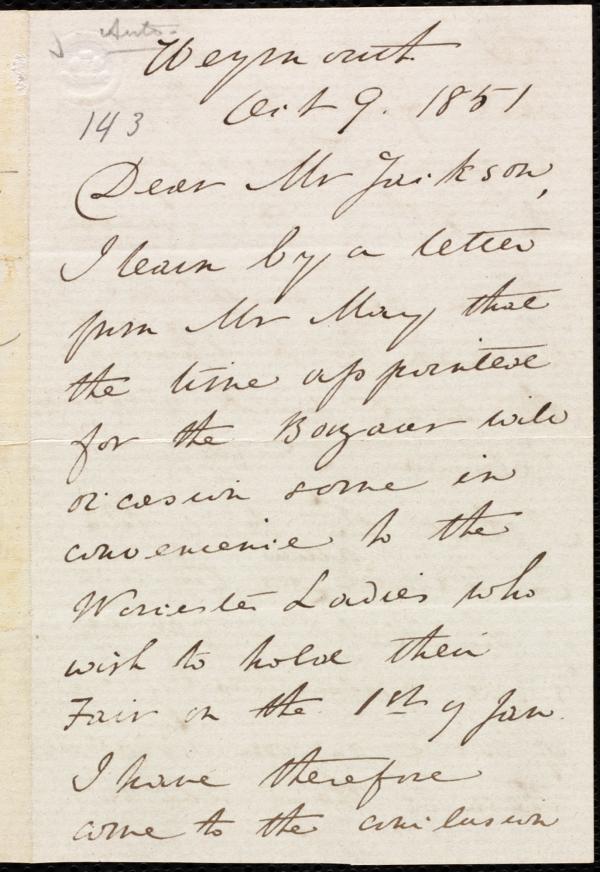 Auto.
Weymouth
143 Oct 9. 1851
Dear Mr Jackson,
I learn by a letter
from Mr May that
the time appointed
for the Bazaar will
occasion some in
convenience to the
Worcester Ladies who
wish to hold their
Fair on the 1st of Jan.
I have therefore
come to the conclusion